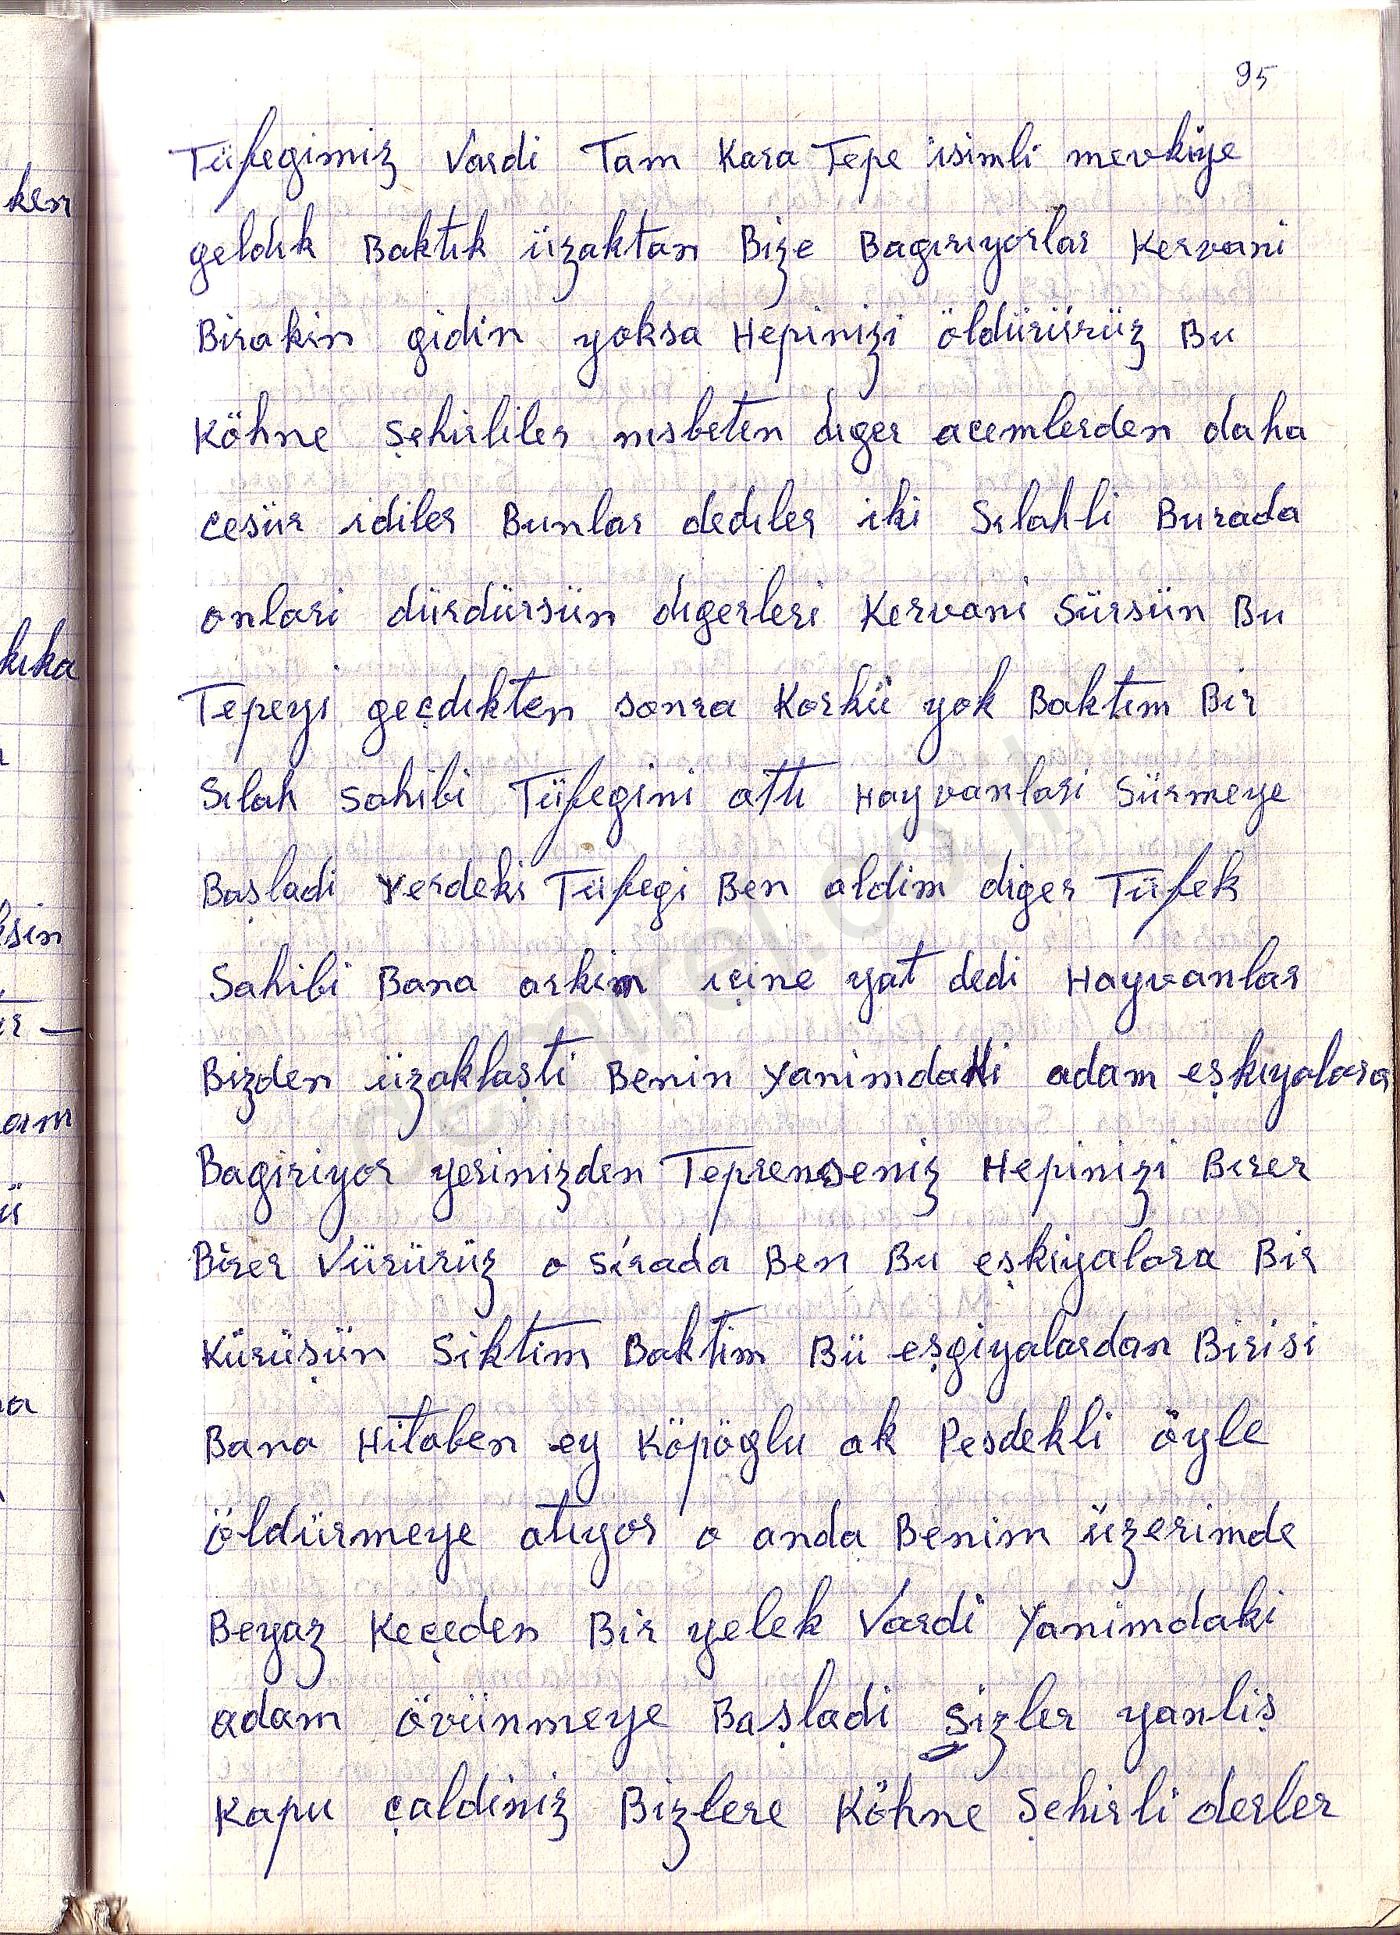 95
Tüfegimiz Vardi Tam Kara Tepe isimli mevkiye
ken
geldık Baktık üzaktan Bize Bagırıyorlar Kervani
Birakin gidin yoksa Hepinizi öldürürüz Bu
Köhne şehirliler nısbeten dıger acemlerden daha
cesür idiler Bunlar dedıler iki Sılahli Burada
onlari dürdürsün dıgerleri Kervani Sürsün Bu
kıka
Tepeyi geçdıkten sonra Korkü yok Baktım Bir
Sılah Sahibi Tüfegini attı Hayvanlari Sürmeye
Başladi Yerdeki Tüfegi Ben aldim diger Tüfek
sin
Sahibi Bana arkin içine yat dedi Hayvanlar
Bizden üzaklaşti Benin Yanimdaki adam eşkıyalara
am
Bagiriyor yerinizden Teprenseniz Hepinizi Bırer
ü
Birer Vürürüz o sirada Ben Bu eşkiyalara Bir
Kürüşün Siktım Baktim Bü eşgiyalardan Birisi
a
Bana Hitaben ey Köpöglu ak Pesdekli öyle
öldürmeye atıyor o anda Benim üzerimde
Beyaz Keçeden Bir yelek Vardi Yanimdaki
adam övünmeye Başladi Sizler yanliş
Kapu çaldiniz Bizlere Köhne Şehirli derler
demirel.co.il